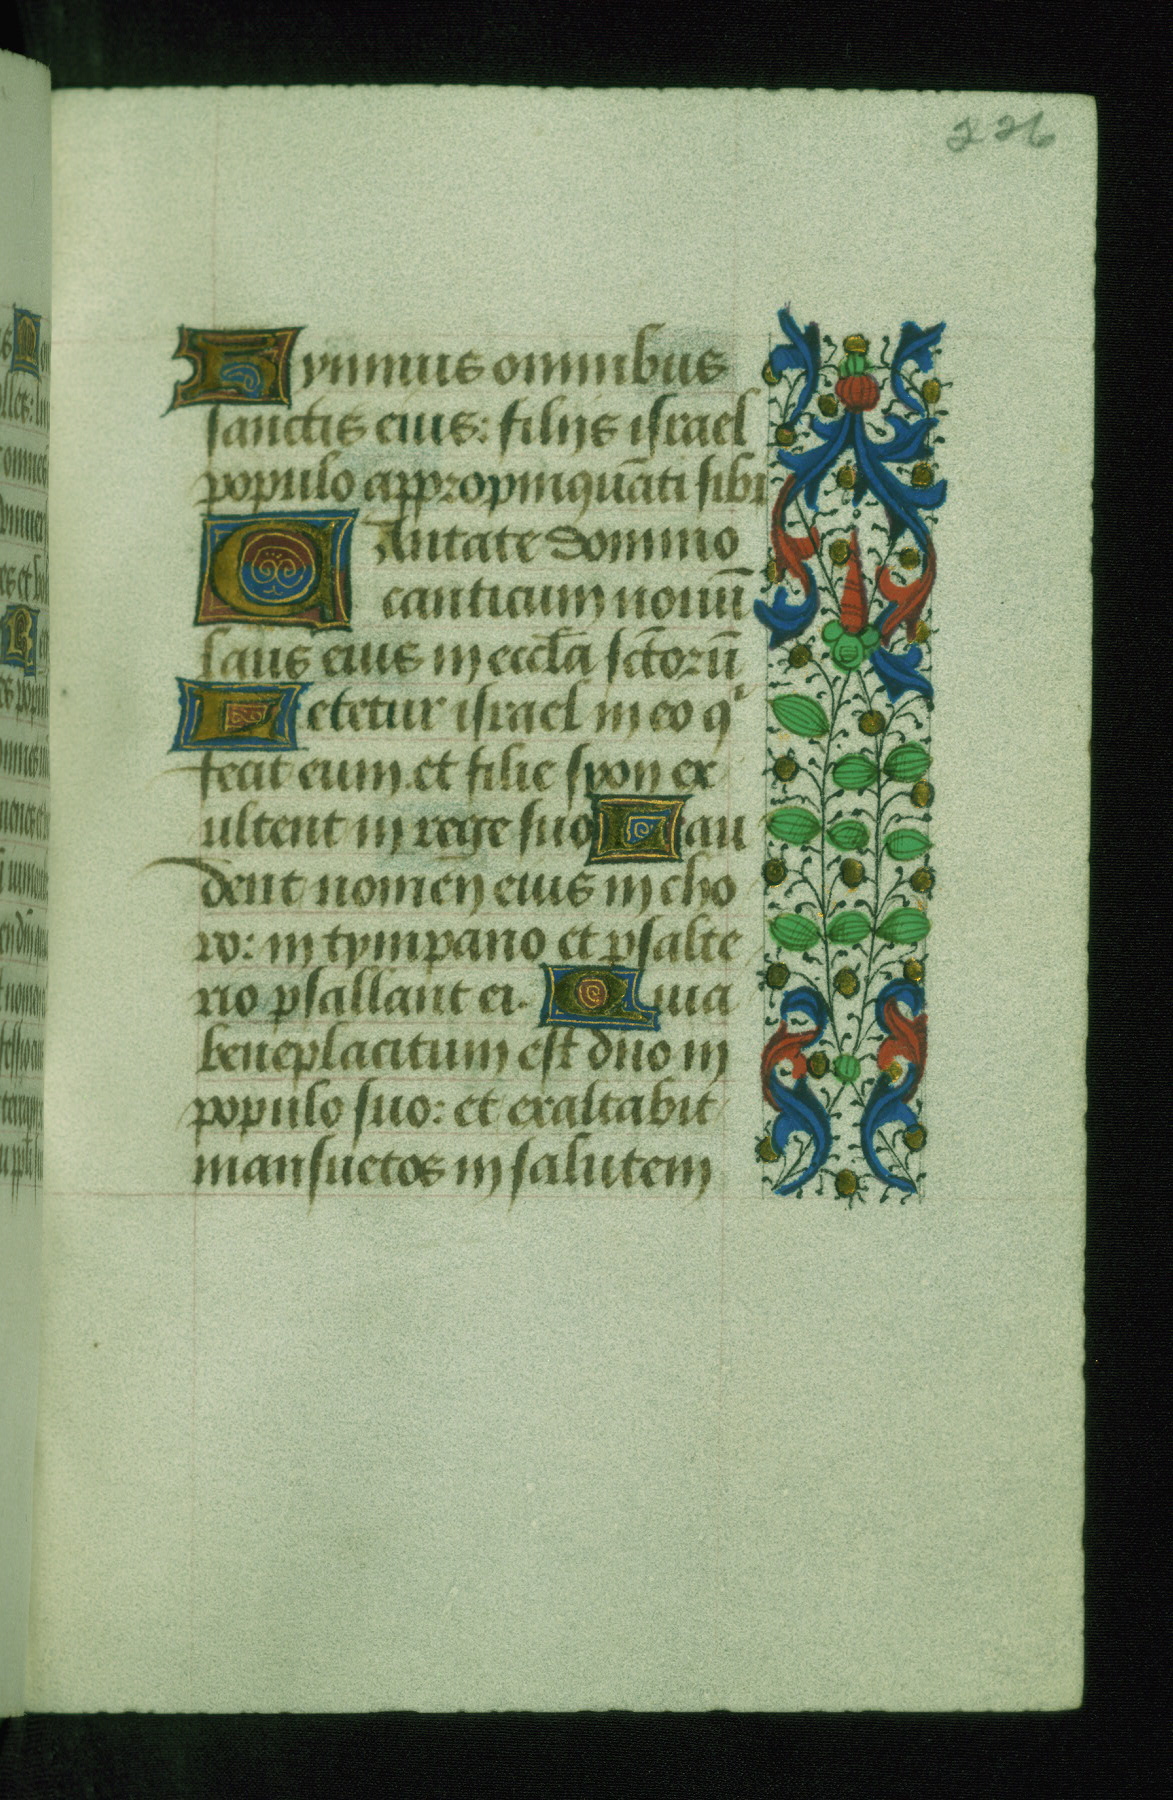 226
Hymnus omnibus
sanctis eius: filijs israel
populo appropinquāti sibi
CAntate domino
canticum nouū
laus eius in eccl̄a sc̄torū
Letetur israel in eo q
fecit eum et filie syon ex
ultent in rege suo Lau
dent nomen eius in cho
ro: in tympano et psalte
rio psallant ei. Quia
beneplacitum est dn̄o in
populo suo: et exaltabit
mansuetos in salutem